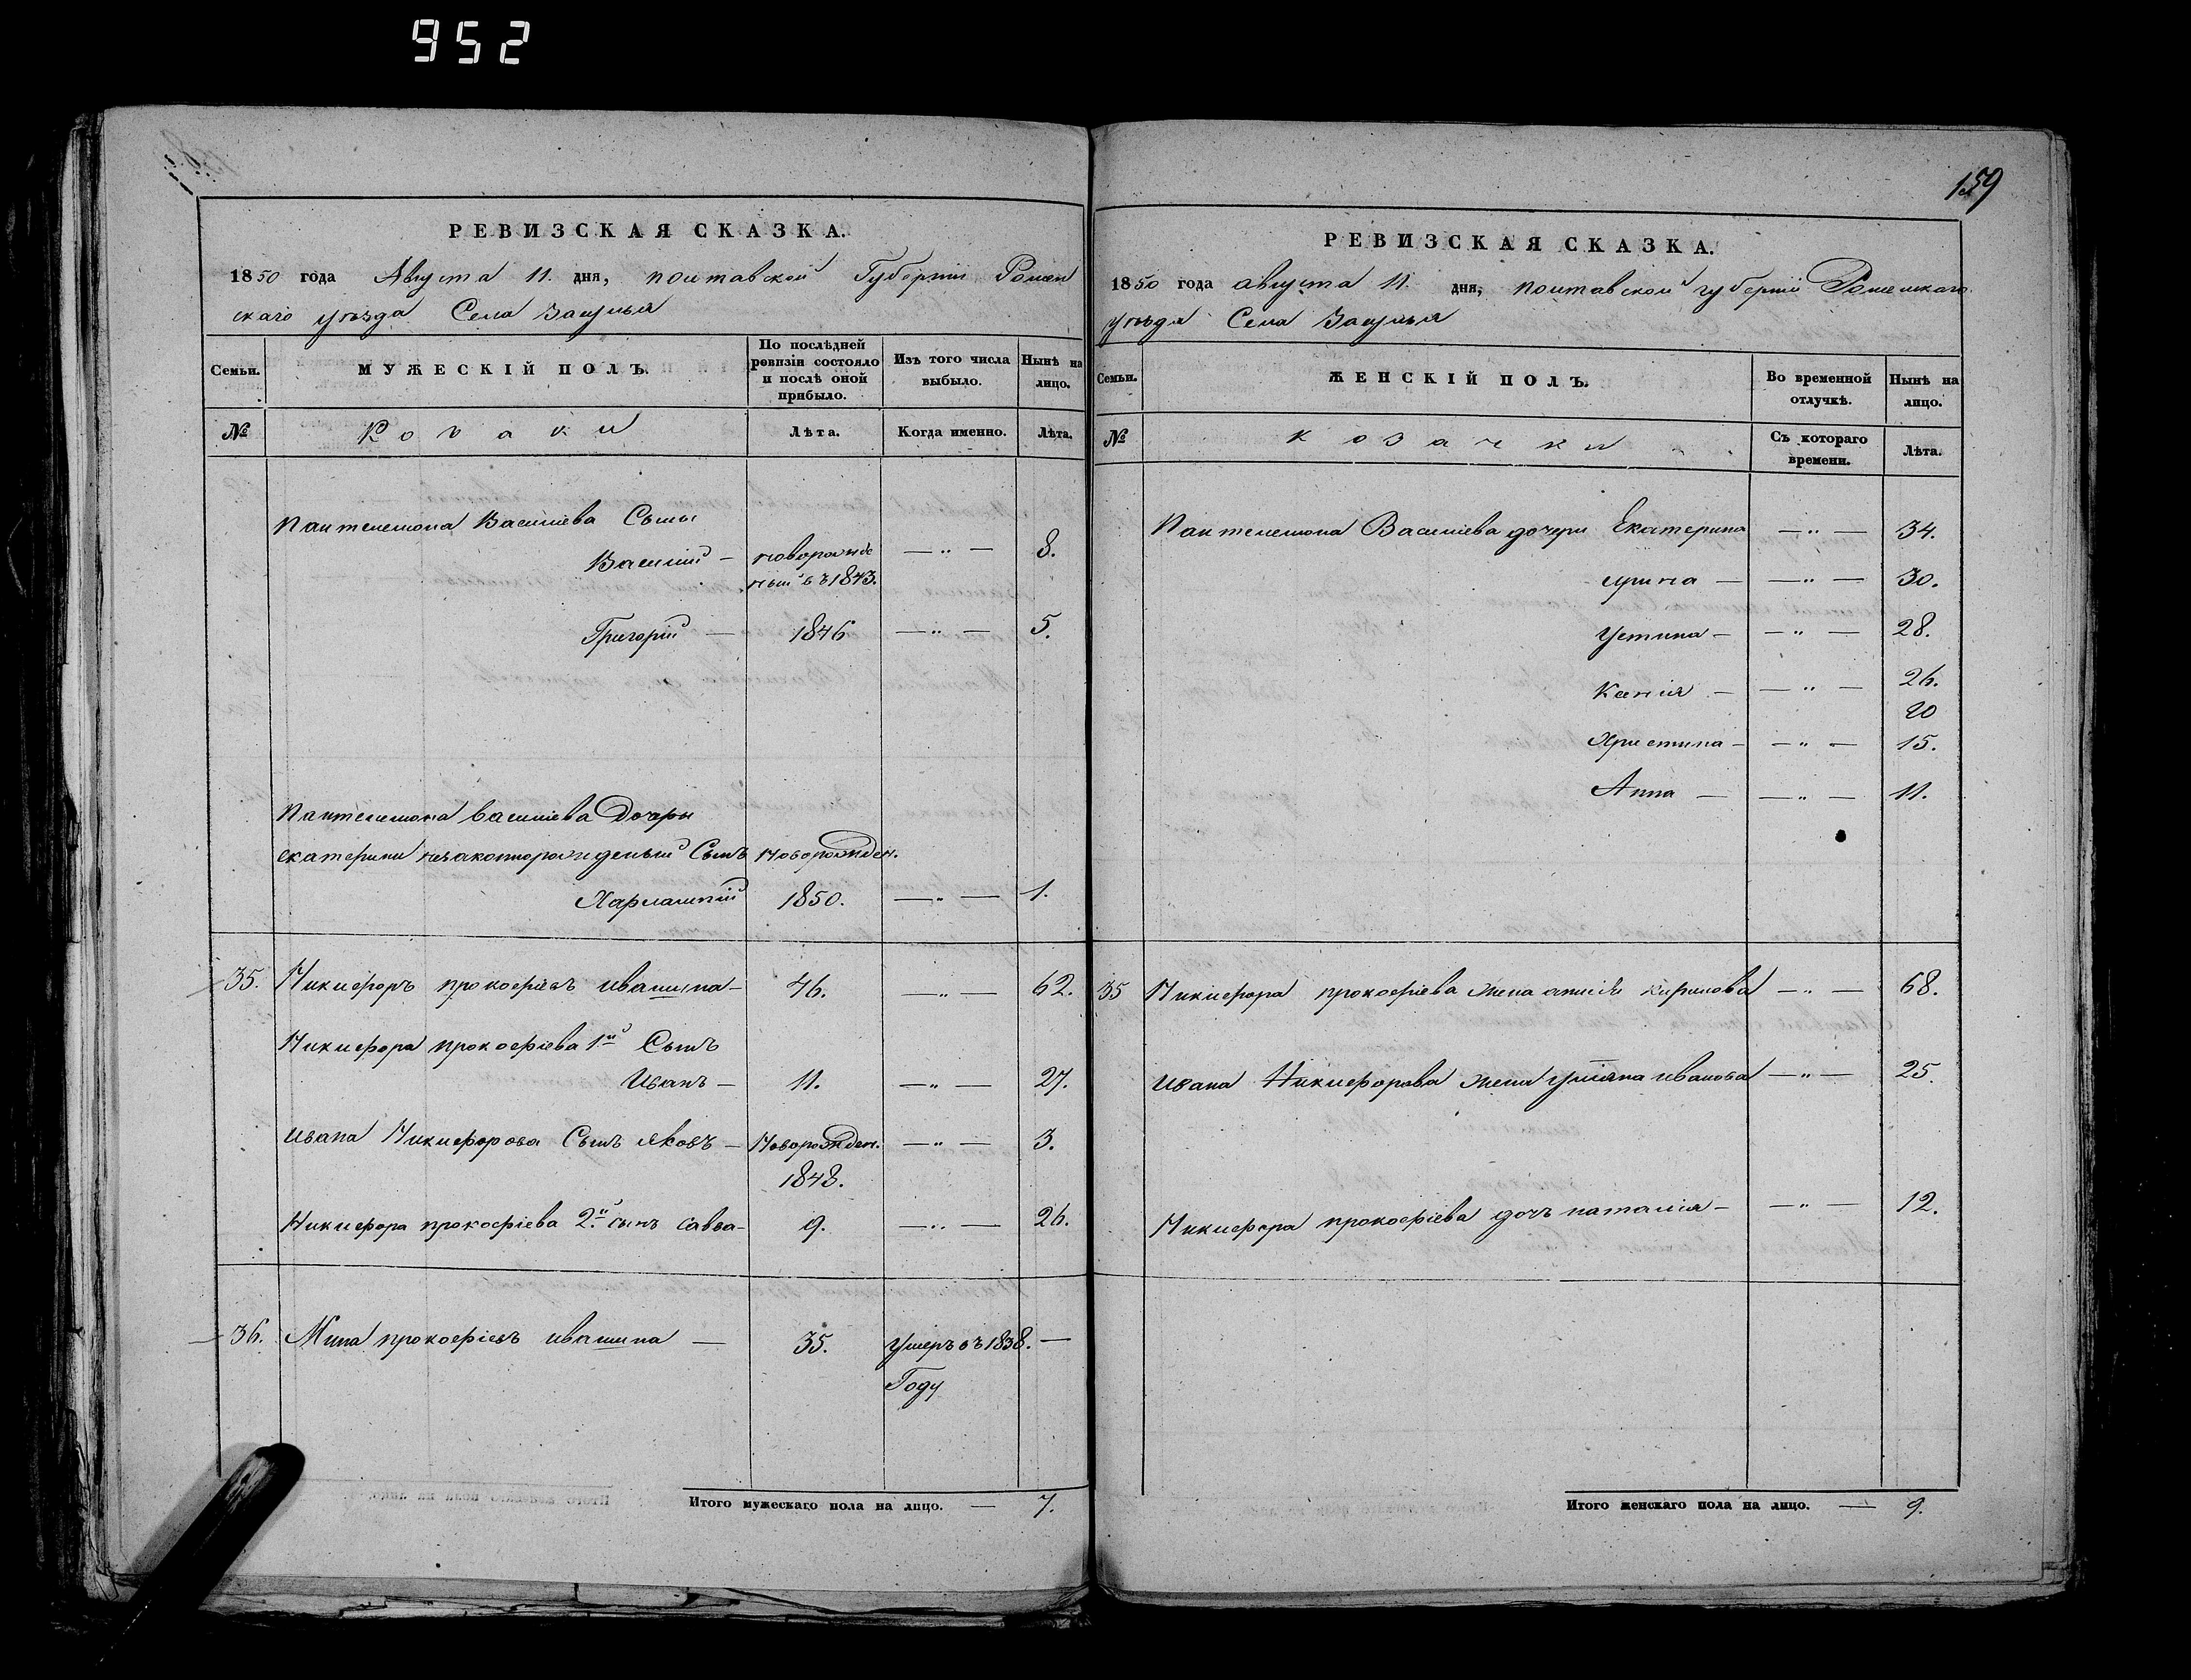 952
159
РЕВИЗСКАЯ СКАЗКА.
1850 года Августа 11. дня, полтавской Губерніи Ромен
скаго уѣзда Села Засулья
Семьи. МУЖЕСКІЙ ПОЛЪ. По послѣдней ревизіи состояло и послѣ оной прибыло. Изъ того числа выбыло. Нынѣ на лицо.
№ Козаки Лѣта. Когда именно. Лѣта.
Пантелемона Василіева Сыны
Василій — новорожде — " — 8.
ный въ 1843.
Григорій — 1846 — " — 5.
Пантелемона василіева Дочеры
екатерины незаконнорожденый Сынъ Новорожден.
Харлампій 1850. — " — 1.
35. Никифоръ прокофіевъ ивашина — 46. — " — 62.
Никифора прокофіева 1й Сынъ
Иванъ — 11. — " — 27.
ивана Никифорова Сынъ яковъ — Новорожден. — " — 3.
1848.
Никифора прокофіева 2.й сынъ савва — 9. — " — 26.
36. Мина прокофіевъ ивашина — 35. Умеръ въ 1838. —
Году
Итого мужескаго пола на лицо. — 7.
РЕВИЗСКАЯ СКАЗКА.
1850 года августа 11. дня, полтавской губерніи Роменскаго
уѣзда Села Засулья
Семьи. ЖЕНСКІЙ ПОЛЪ. Во временной отлучкѣ. Нынѣ на лицо.
№ козачки Съ котораго времени. Лѣта.
Пантелемона Василіева дочери Екатерина — " — 34.
ирина — — " — 30.
Устина — — " — 28.
Ксенія — — " — 26.
20
Христина — — " — 15.
Анна — — " — 11.
35 Никифора прокофіева жена Кирилова — " — 68.
ивана Никифорова жена уліяна иванова — " — 25.
Никифора прокофіева дочь наталія — — " — 12.
Итого женскаго пола на лицо. — 9.